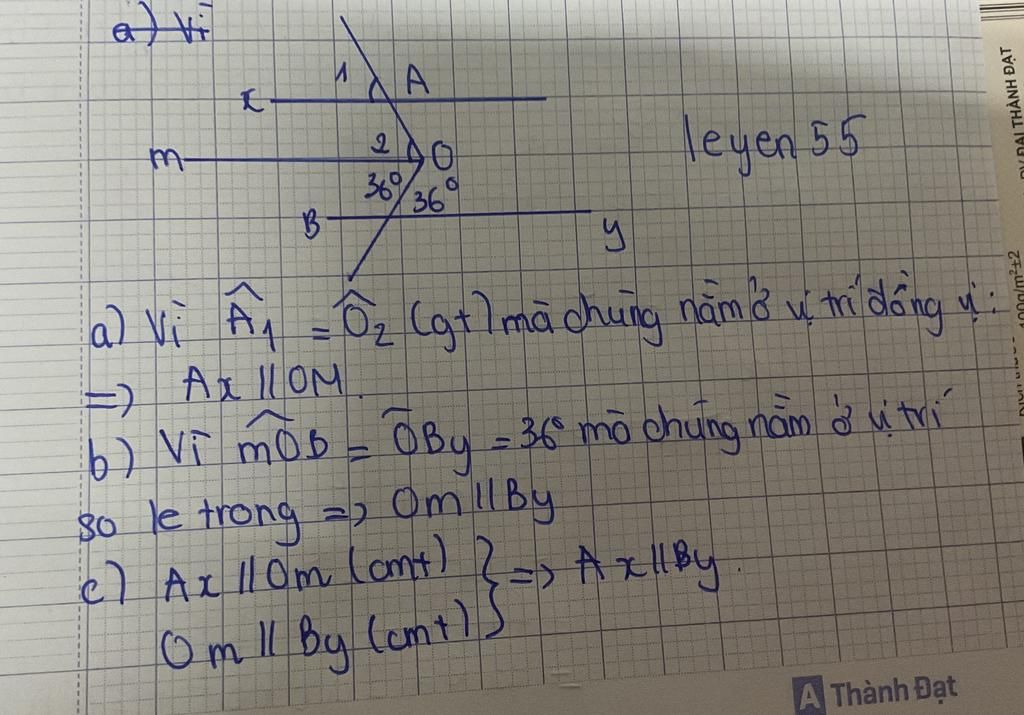 a) Vì
1 A
x
m 2 O
36° 36°
B y
leyen 55
a) Vì Â₁ = Ô₂ (gt) mà chúng nằm ở vị trí đồng vị:
=> Ax // OM.
b) Vì mÔB = ÔBy = 36° mà chúng nằm ở vị trí
so le trong => Om // By
c) Ax // Om (cmt) } => Ax // By.
Om // By (cmt)
A Thành Đạt
ĐẠI THÀNH ĐẠT
100g/m²±2